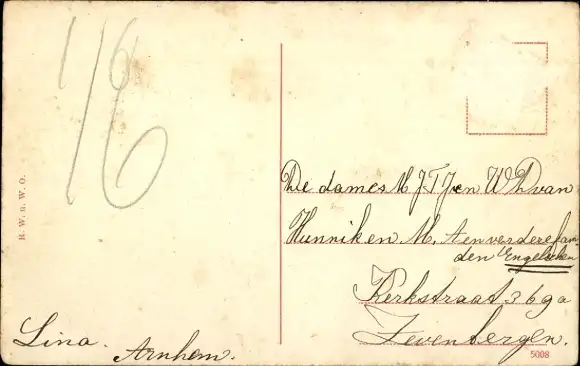 1/6
R. W. u. W. O.
De dames M J T J en W D van
Hunniken M. A en verdere fam.
den Engelschen
Kerkstraat 369a
Zevenbergen.
Lina.
Arnhem.
5008